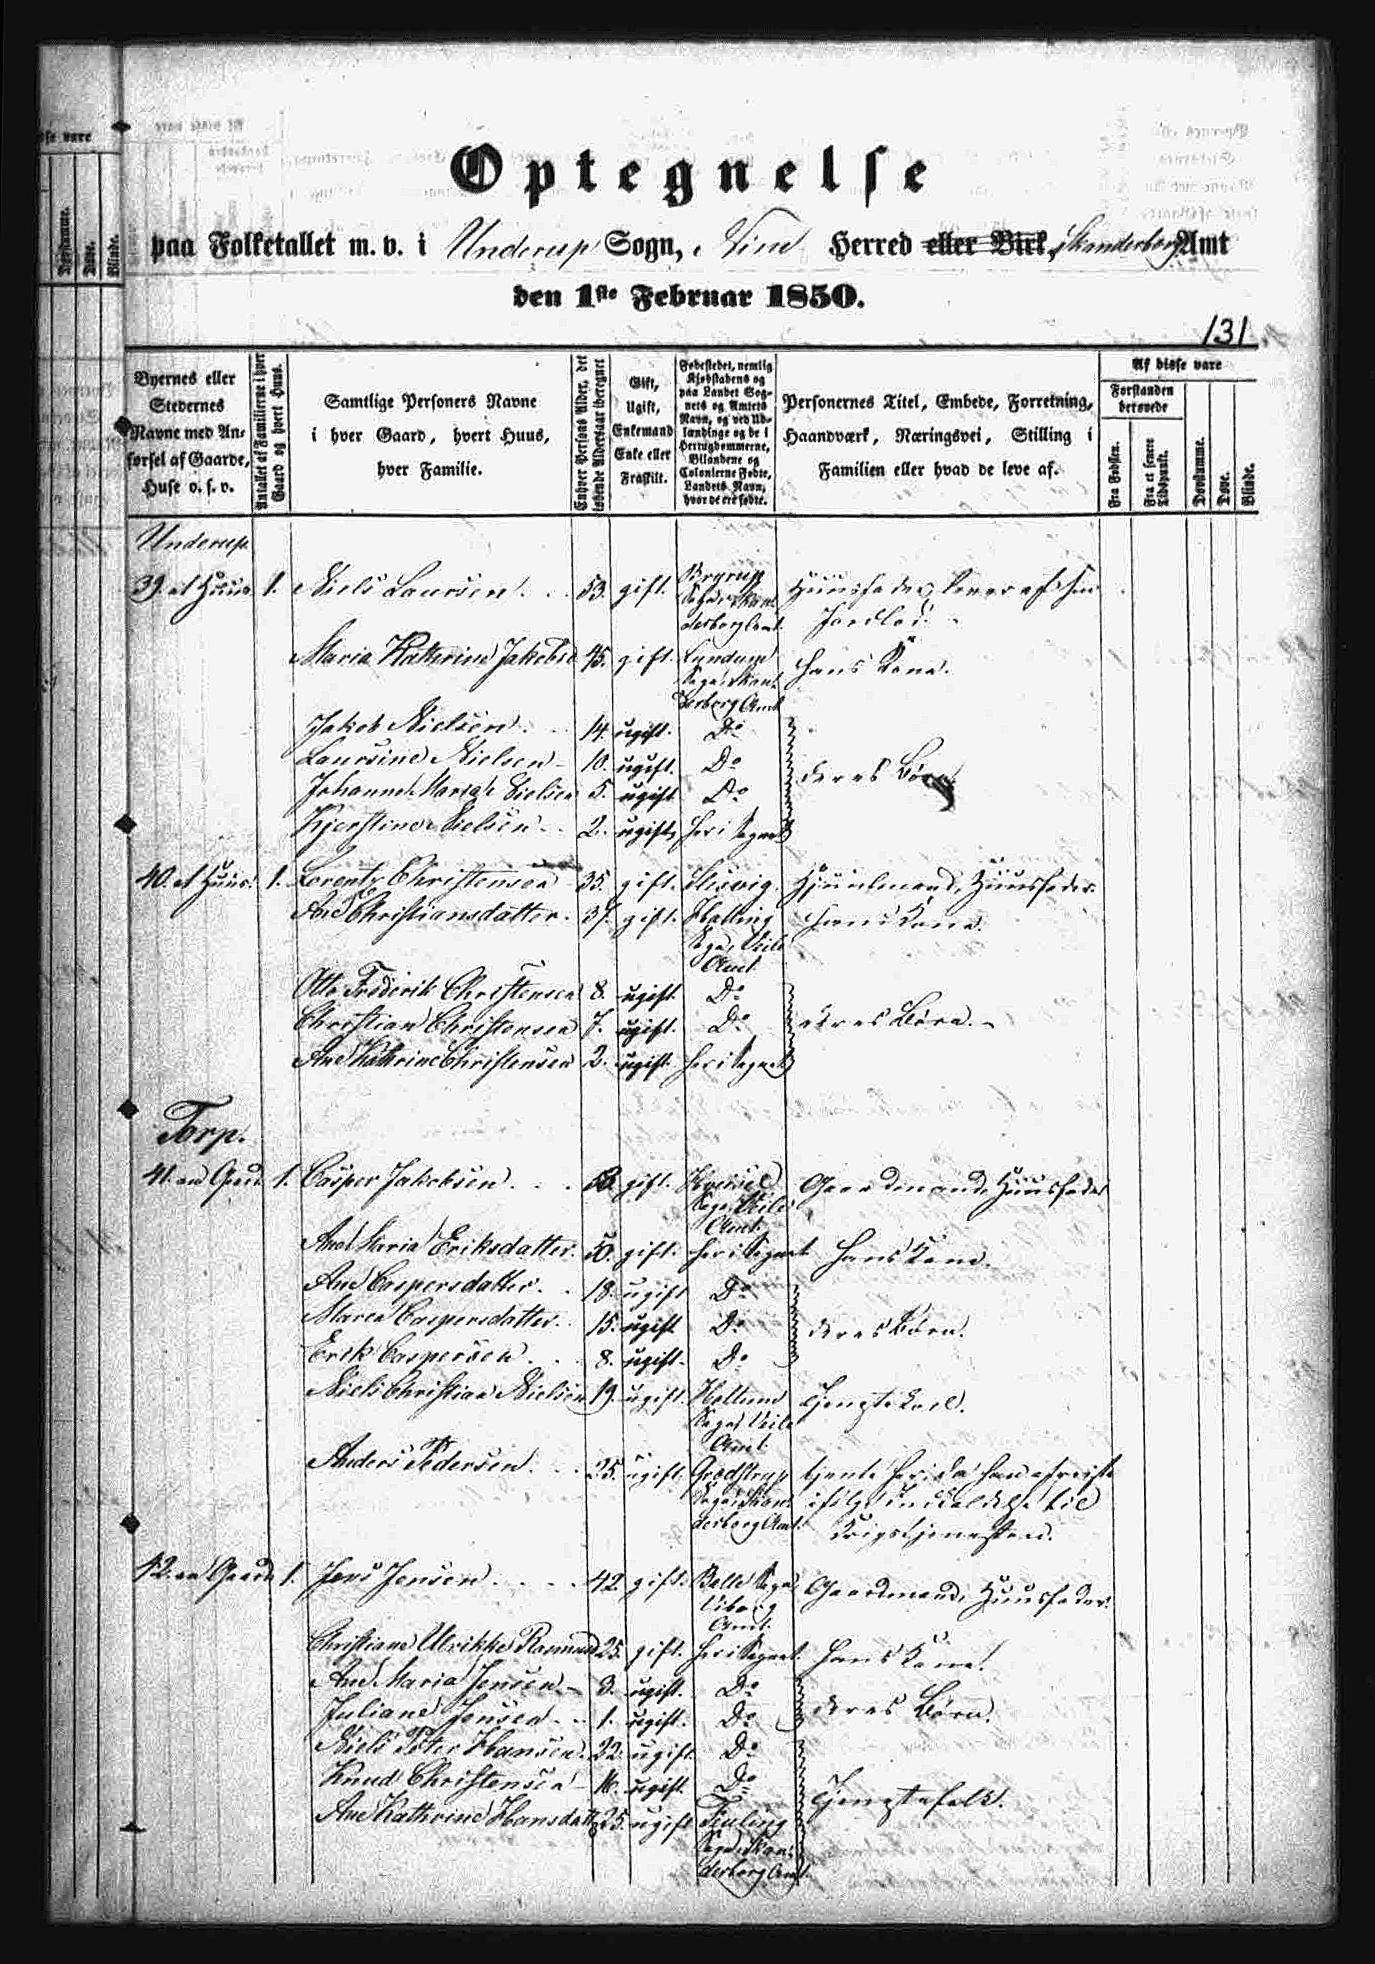 Optegnelse
paa Folketallet m. v. i Underup Sogn, Herred eller Birk, Skanderborg Amt
den 1ste Februar 1850.
131
Byernes eller
Stedernes
Navne med An-
førsel af Gaarde,
Huse o. s. v.
Antallet af Familierne i hver
Gaard og hvert Huus.
Samtlige Personers Navne
i hver Gaard, hvert Huus,
hver Familie.
Enhver Persons Alder, det
løbende Aldersaar iberegnet
Gift,
Ugift,
Enkemand
Enke eller
Fraskilt.
Fødestedet, nemlig
Kjøbstadens og
paa Landet Sog-
nets og Amtets
Navn, og ved Ud-
lændinge og de i
Hertugdømmerne,
Bilandene og
Colonierne Fødte,
Landets Navn,
hvor de ere fødte.
Personernes Titel, Embede, Forretning,
Haandværk, Næringsvei, Stilling i
Familien eller hvad de leve af.
Af disse vare
Forstanden
berøvede
Fra Fødslen.
Fra et senere
Tidspunkt.
Døvstumme.
Døve.
Blinde.
Underup
39. et Huus 1. Niels Laursen 53. gift. Bryrup
Sogn Skan-
derborg Amt. Huusfader, lever af sin
Jordlod.
Maria Kathrine Jakobsd 45. gift. Sogn Skan-
derborg Amt hans Kone.
Jakob Nielsen 14. ugift. Do
Laursine Nielsen 10. ugift. Do deres Børn
Johanne Maria Nielsen 5. ugift Do
Kjerstine Nielsen 2. ugift, her i Sognet
40. et Huus. 1. Lorentz Christensen 35. gift. Slesvig. Hjuulmand, Huusfader.
Ane Christiansdatter. 37. gift. Hatting
Sogn, Veile
Amt. hans Kone.
Otto Frederik Christensen 8. ugift. Do
Christian Christensen 7. ugift. Do deres Børn.
Ane Kathrine Christensen 2. ugift. her i Sognet
Torp.
41. en Gaard 1. Casper Jakobsen gift. Sogn, Veile
Amt. Gaardmand, Huusfader
Ane Maria Eriksdatter. 50. gift. her i Sognet hans Kone.
Ane Caspersdatter. 18. ugift Do
Maren Caspersdatter. 15. ugift Do deres Børn.
Erik Caspersen 8. ugift. Do
Niels Christian Nielsen 19. ugift. Hvltum
Sogn, Veile
Amt. Tjenestekarl.
Anders Pedersen 25. ugift. Grædstrup
Sogn, Skan-
derborg Amt. tjente her, da han afreiste
ifølge Indkaldelse til
Krigstjenesten.
42. en Gaard 1. Jens Jensen 42. gift. Balle Sogn,
Viborg
Amt. Gaardmand, Huusfader.
Christiane Ulrikke Rasmusd 25. gift. her i Sognet. hans Kone.
Ane Maria Jensen 3. ugift. Do
Juliane Jensen 1. ugift. Do deres Børn.
Niels Peter Hansen. 22. ugift. Do
Knud Christensen 16. ugift. Do Tjenestefolk.
Ane Kathrine Hansdatt 25. ugift
Sogn, Skan-
derborg Amt.